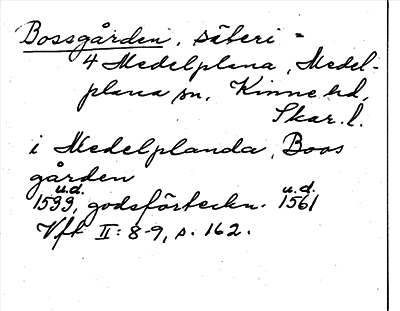 Bossgården, säteri =
4 Medelplana, Medel-
plana sn, Kinne hd,
Skar. l.
i Medelplanda, Boos
gården
u.d. u.d.
1599, godsförteckn. 1561
Vft II: 8-9, s. 162.